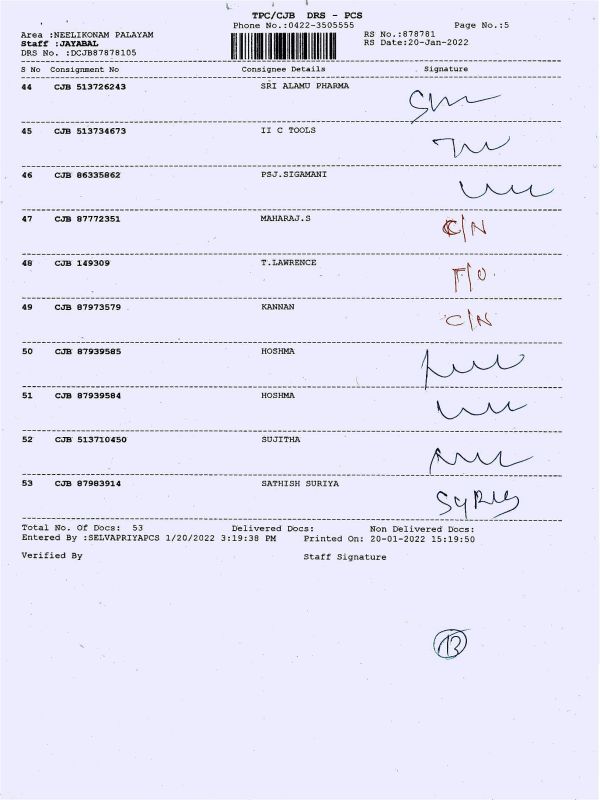 TPC/CJB DRS - PCS
Phone No.:0422-3505555 Page No.:5
Area :NEELIKONAM PALAYAM RS No.:878781
Staff :JAYABAL RS Date:20-Jan-2022
DRS No. :DCJB87878105
S No Consignment No Consignee Details Signature
44 CJB 513726243 SRI ALAMU PHARMA
45 CJB 513734673 II C TOOLS
46 CJB 86335862 PSJ.SIGAMANI
47 CJB 87772351 MAHARAJ.S C/N
48 CJB 149309 T.LAWRENCE F/O
49 CJB 87973579 KANNAN C/N
50 CJB 87939585 HOSHMA
51 CJB 87939584 HOSHMA
52 CJB 513710450 SUJITHA
53 CJB 87983914 SATHISH SURIYA
Total No. Of Docs: 53 Delivered Docs: Non Delivered Docs:
Entered By :SELVAPRIYAPCS 1/20/2022 3:19:38 PM Printed On: 20-01-2022 15:19:50
Verified By Staff Signature